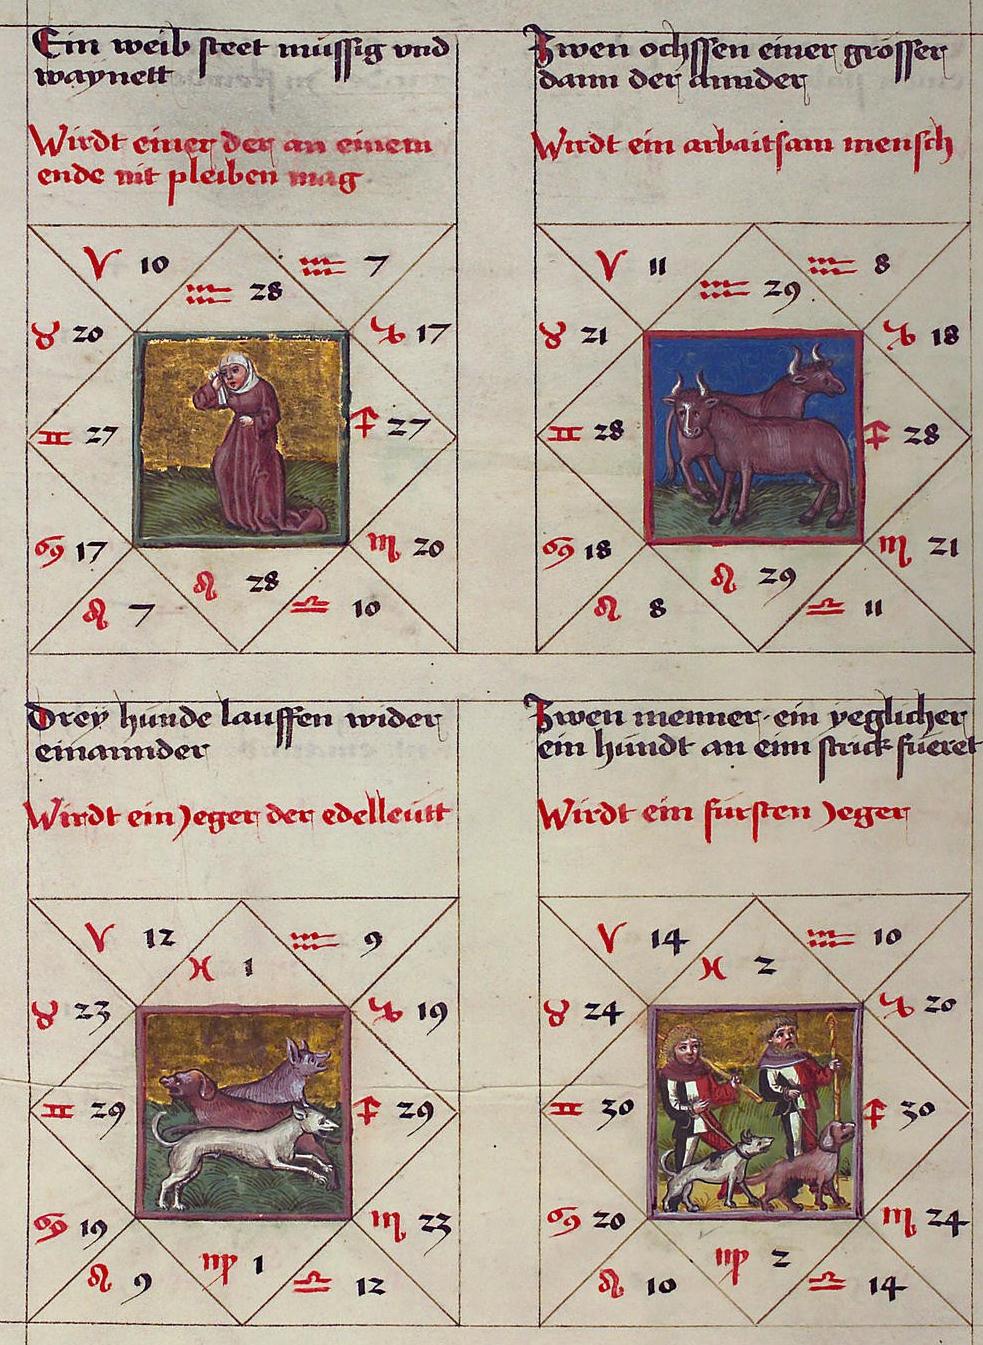 Ein weib steet müssig vnd
waynett
Wirdt einer der an einem
ende nit pleiben mag
♈ 10
♒ 7
♒ 28
♉ 20
♑ 17
♊ 27
♐ 27
♋ 17
♏ 20
♌ 28
♌ 7
♎ 10
Zwen ochssen einer grösser
dann der annder
Wirdt ein arbaitsam mensch
♈ 11
♒ 8
♒ 29
♉ 21
♑ 18
♊ 28
♐ 28
♋ 18
♏ 21
♌ 29
♌ 8
♎ 11
Drey hunde lauffen wider
einannder
Wirdt ein Jeger der edelleütt
♈ 12
♒ 9
♓ 1
♉ 23
♑ 19
♊ 29
♐ 29
♋ 19
♏ 23
♍ 1
♌ 9
♎ 12
Zwen menner ein yeglicher
ein hundt an eim strick füeret
Wirdt ein fürsten Jeger
♈ 14
♒ 10
♓ 2
♉ 24
♑ 20
♊ 30
♐ 30
♋ 20
♏ 24
♍ 2
♌ 10
♎ 14